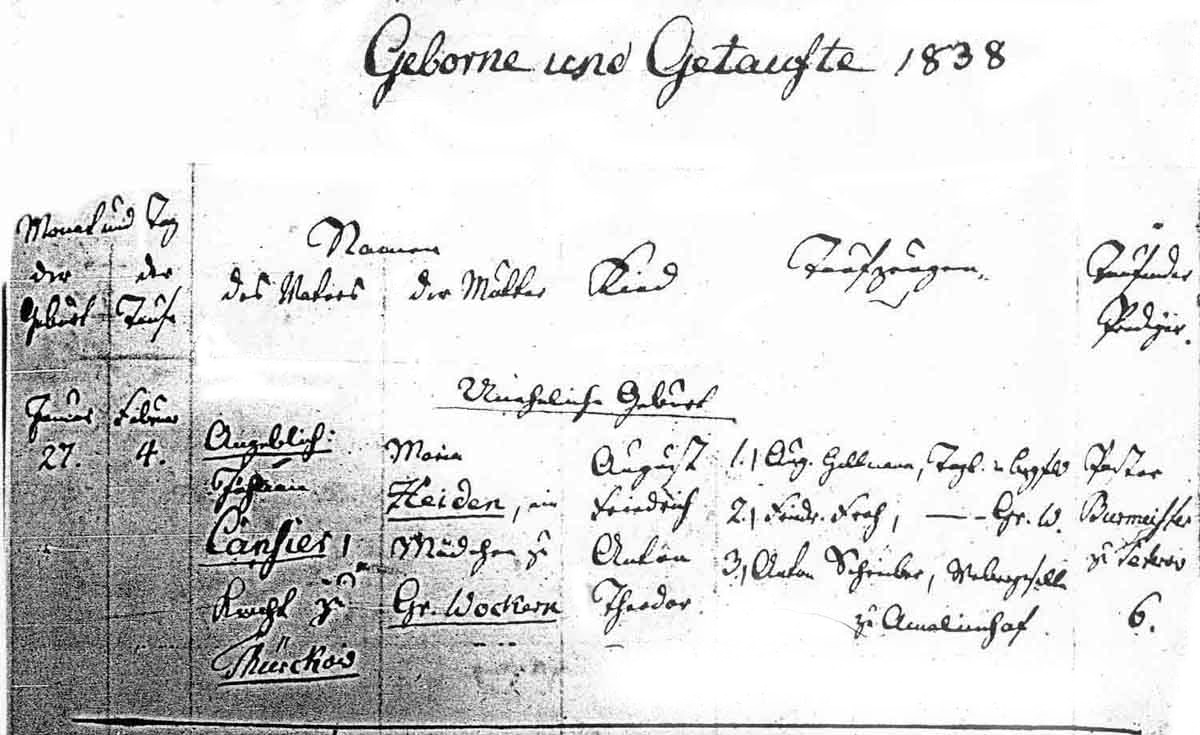 Geborne und Getaufte 1838
Monat und Tag
der
Geburt
der
Taufe
Namen
des Vaters
der Mutter
Kind
Taufzeugen.
Taufender
Prediger.
Uneheliche Geburt
Januar
27.
Februar
4.
Angeblich:
Johann
Cansier,
Knecht zu
Thürckow
Maria
Heiden, ein
Mädchen zu
Gr. Wockern
August
Friedrich
Anton
Theodor
1.) Aug. Hallmann, Tagl.
2.) Friedr. Froh, — - Gr. W.
3.) Anton Schreiber, Webergesell
zu Amalienhof
Pastor
Burmeister
zu Teterow
6.